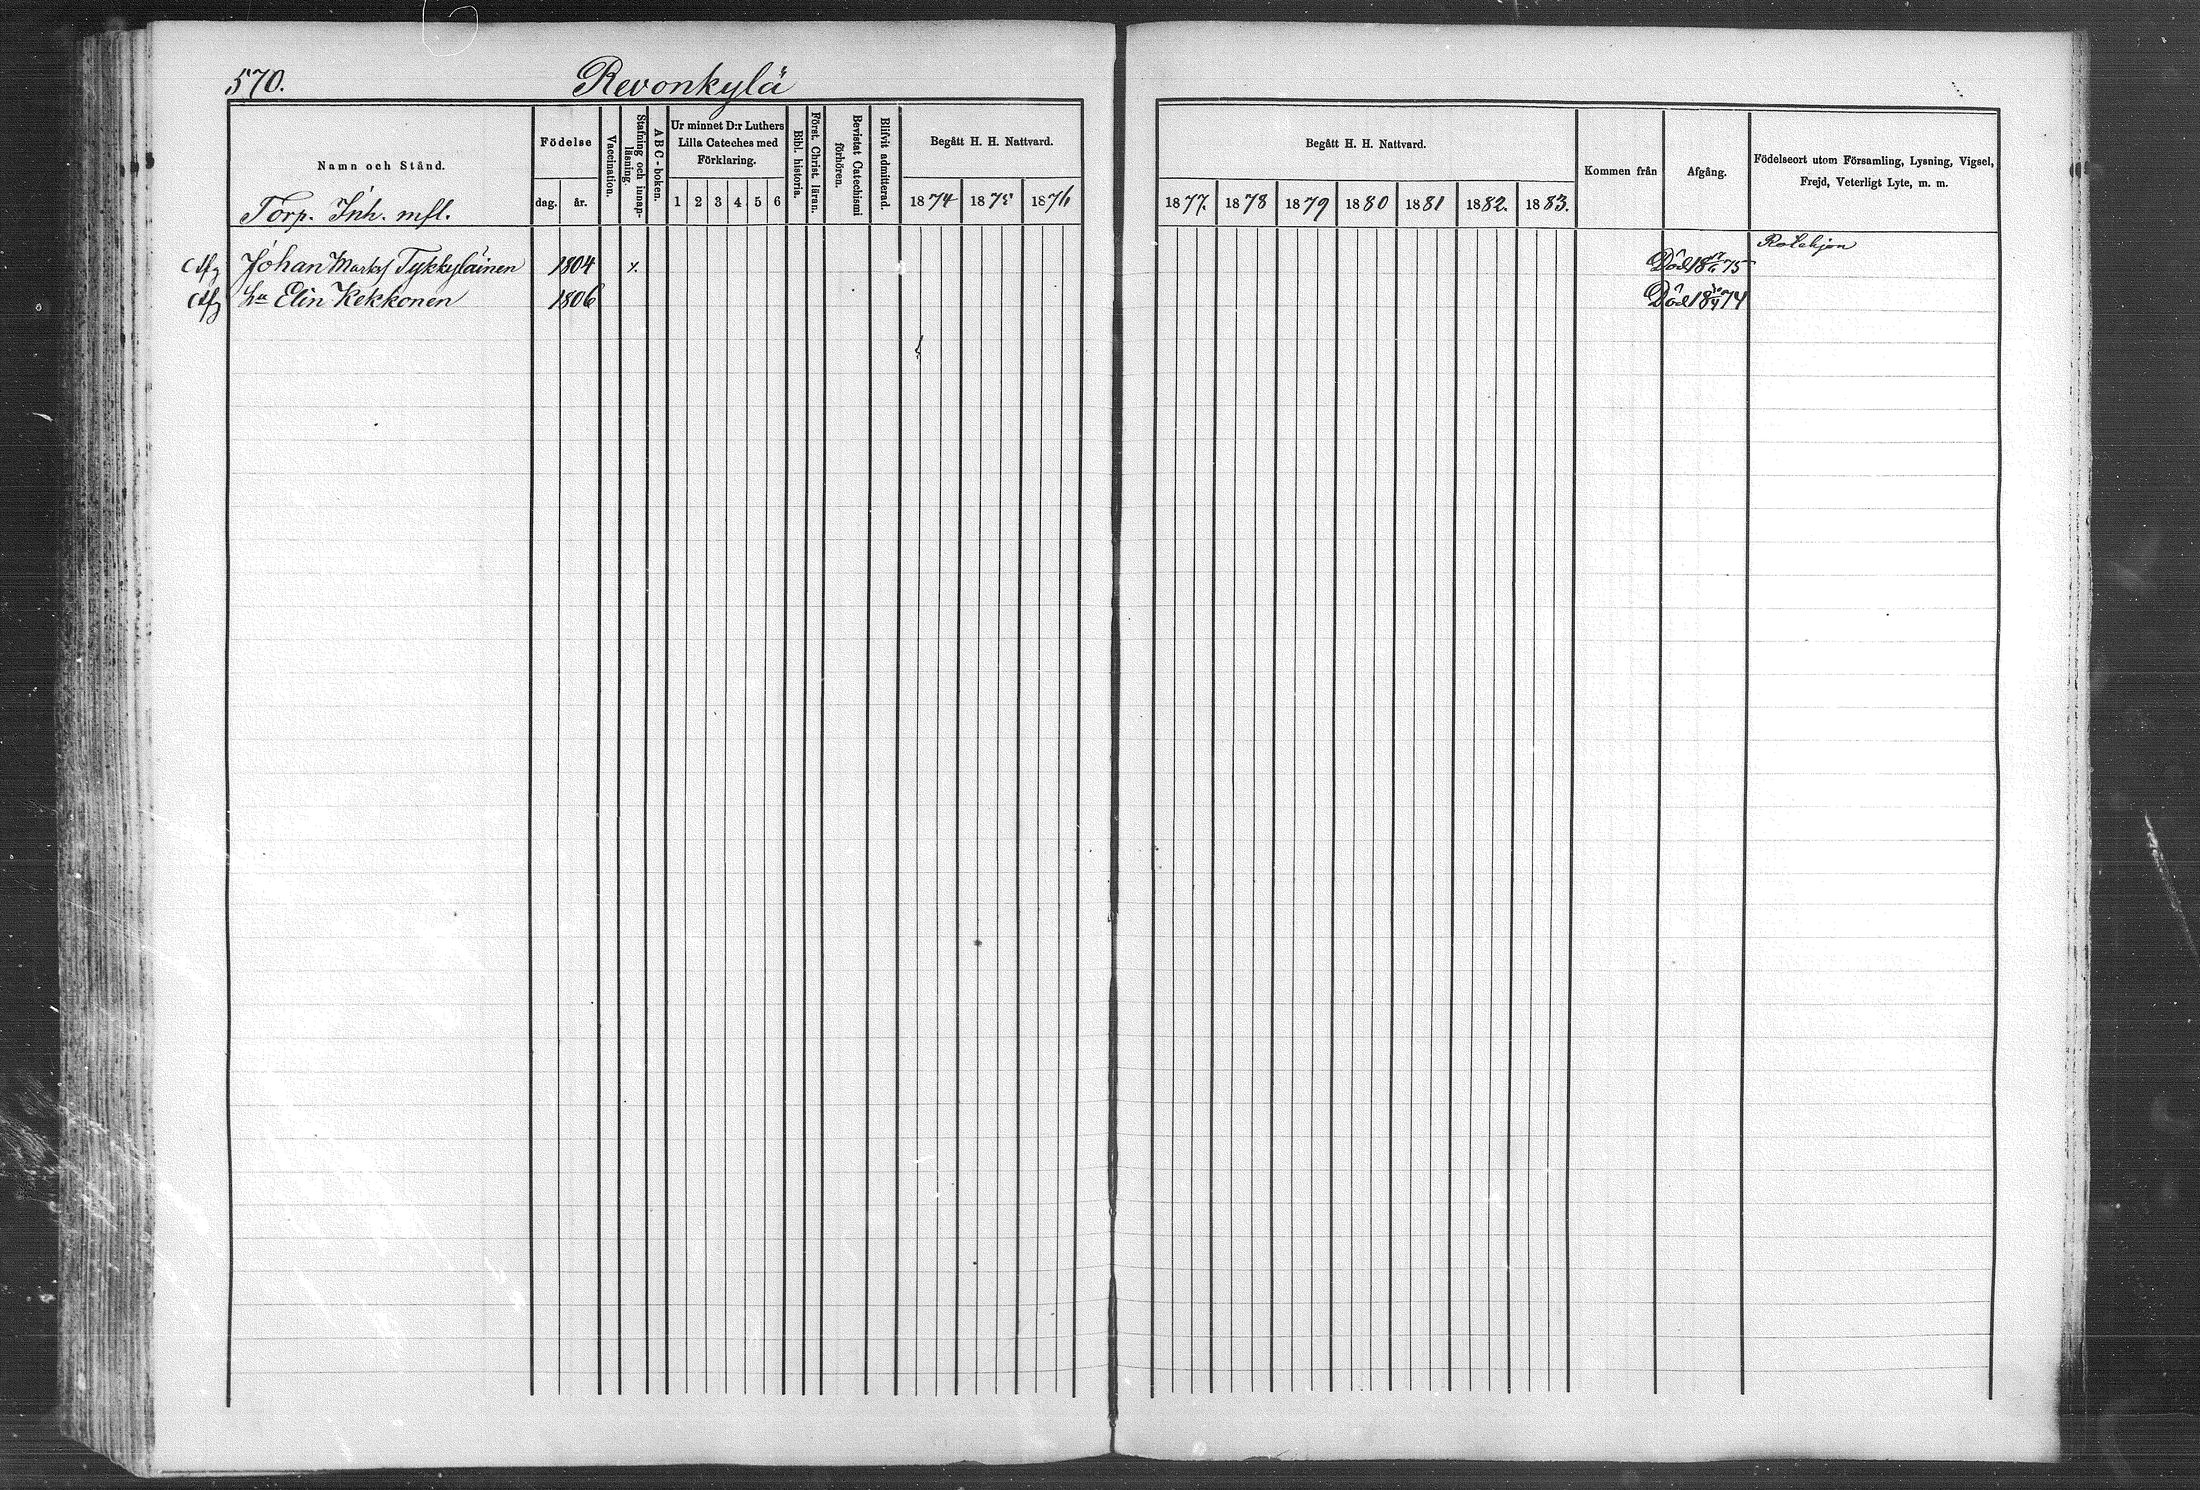 570.
Revonkylä
Namn och Stånd.
Födelse
dag.
år.
Vaccination.
Stafning och innan-
läsning.
ABC-boken.
Ur minnet D:r Luthers
Lilla Cateches med
Förklaring.
1 2 3 4 5 6
Bibl. historia.
Först. Christ. läran.
Bevistat Catechismi
förhören.
Blifvit admitterad.
Begått H. H. Nattvard.
1874 1875 1876
Begått H. H. Nattvard.
1877. 1878 1879 1880 1881 1882. 1883.
Kommen från
Afgång.
Födelseort utom Församling, Lysning, Vigsel,
Frejd, Veterligt Lyte, m. m.
Torp. Inh. mfl.
Johan Marksf Tykkyläinen 1804 x. Död 18 75
hu Elin Kekkonen 1806 Död 18 74